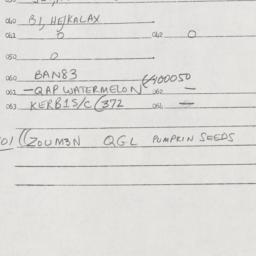 040 BI, HE/KALAX
041 0 042 0
050 0
060 BAN83
061 -QAP WATERMELON (400050 062 -
063 KERB1S/C(372 064 -
01 ((ZOUM3N QGL PUMPKIN SEEDS